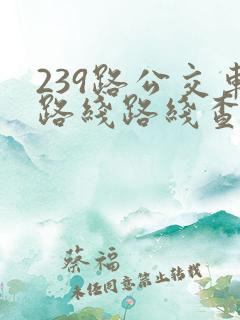 239路公交車
路綫路綫查
蔡福
未经同意禁止转载